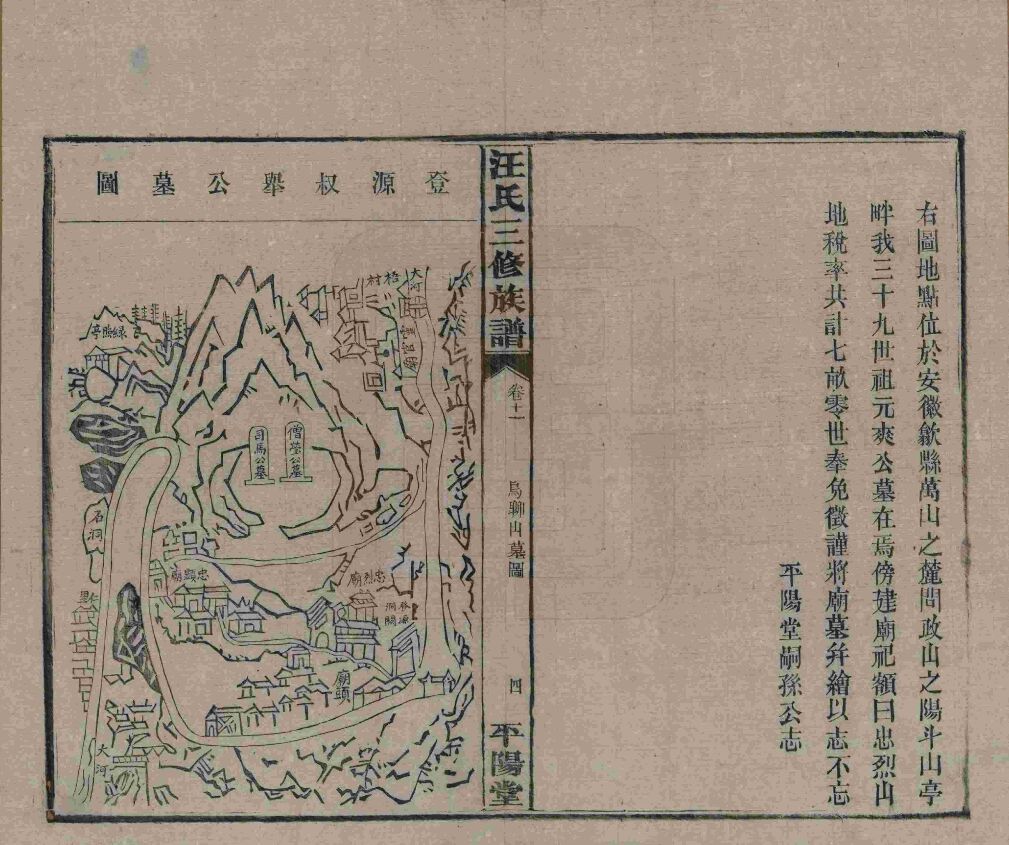 右圖地點位於安徽歙縣萬山之麓問政山之陽斗山亭
畔我三十九世祖元爽公墓在焉傍建廟祀額曰忠烈山
地稅率共計七畝零世奉免徵謹將廟墓幷繪以志不忘
平陽堂嗣孫公志
汪氏三修族譜
卷十一
烏聊山墓圖
四
平陽堂
登源叔舉公墓圖
大河
梧村
靈官廟
綠照亭
僧瑩公墓
司馬公墓
石洞
忠顯廟
忠烈廟
登源洞關
廟頭
大河